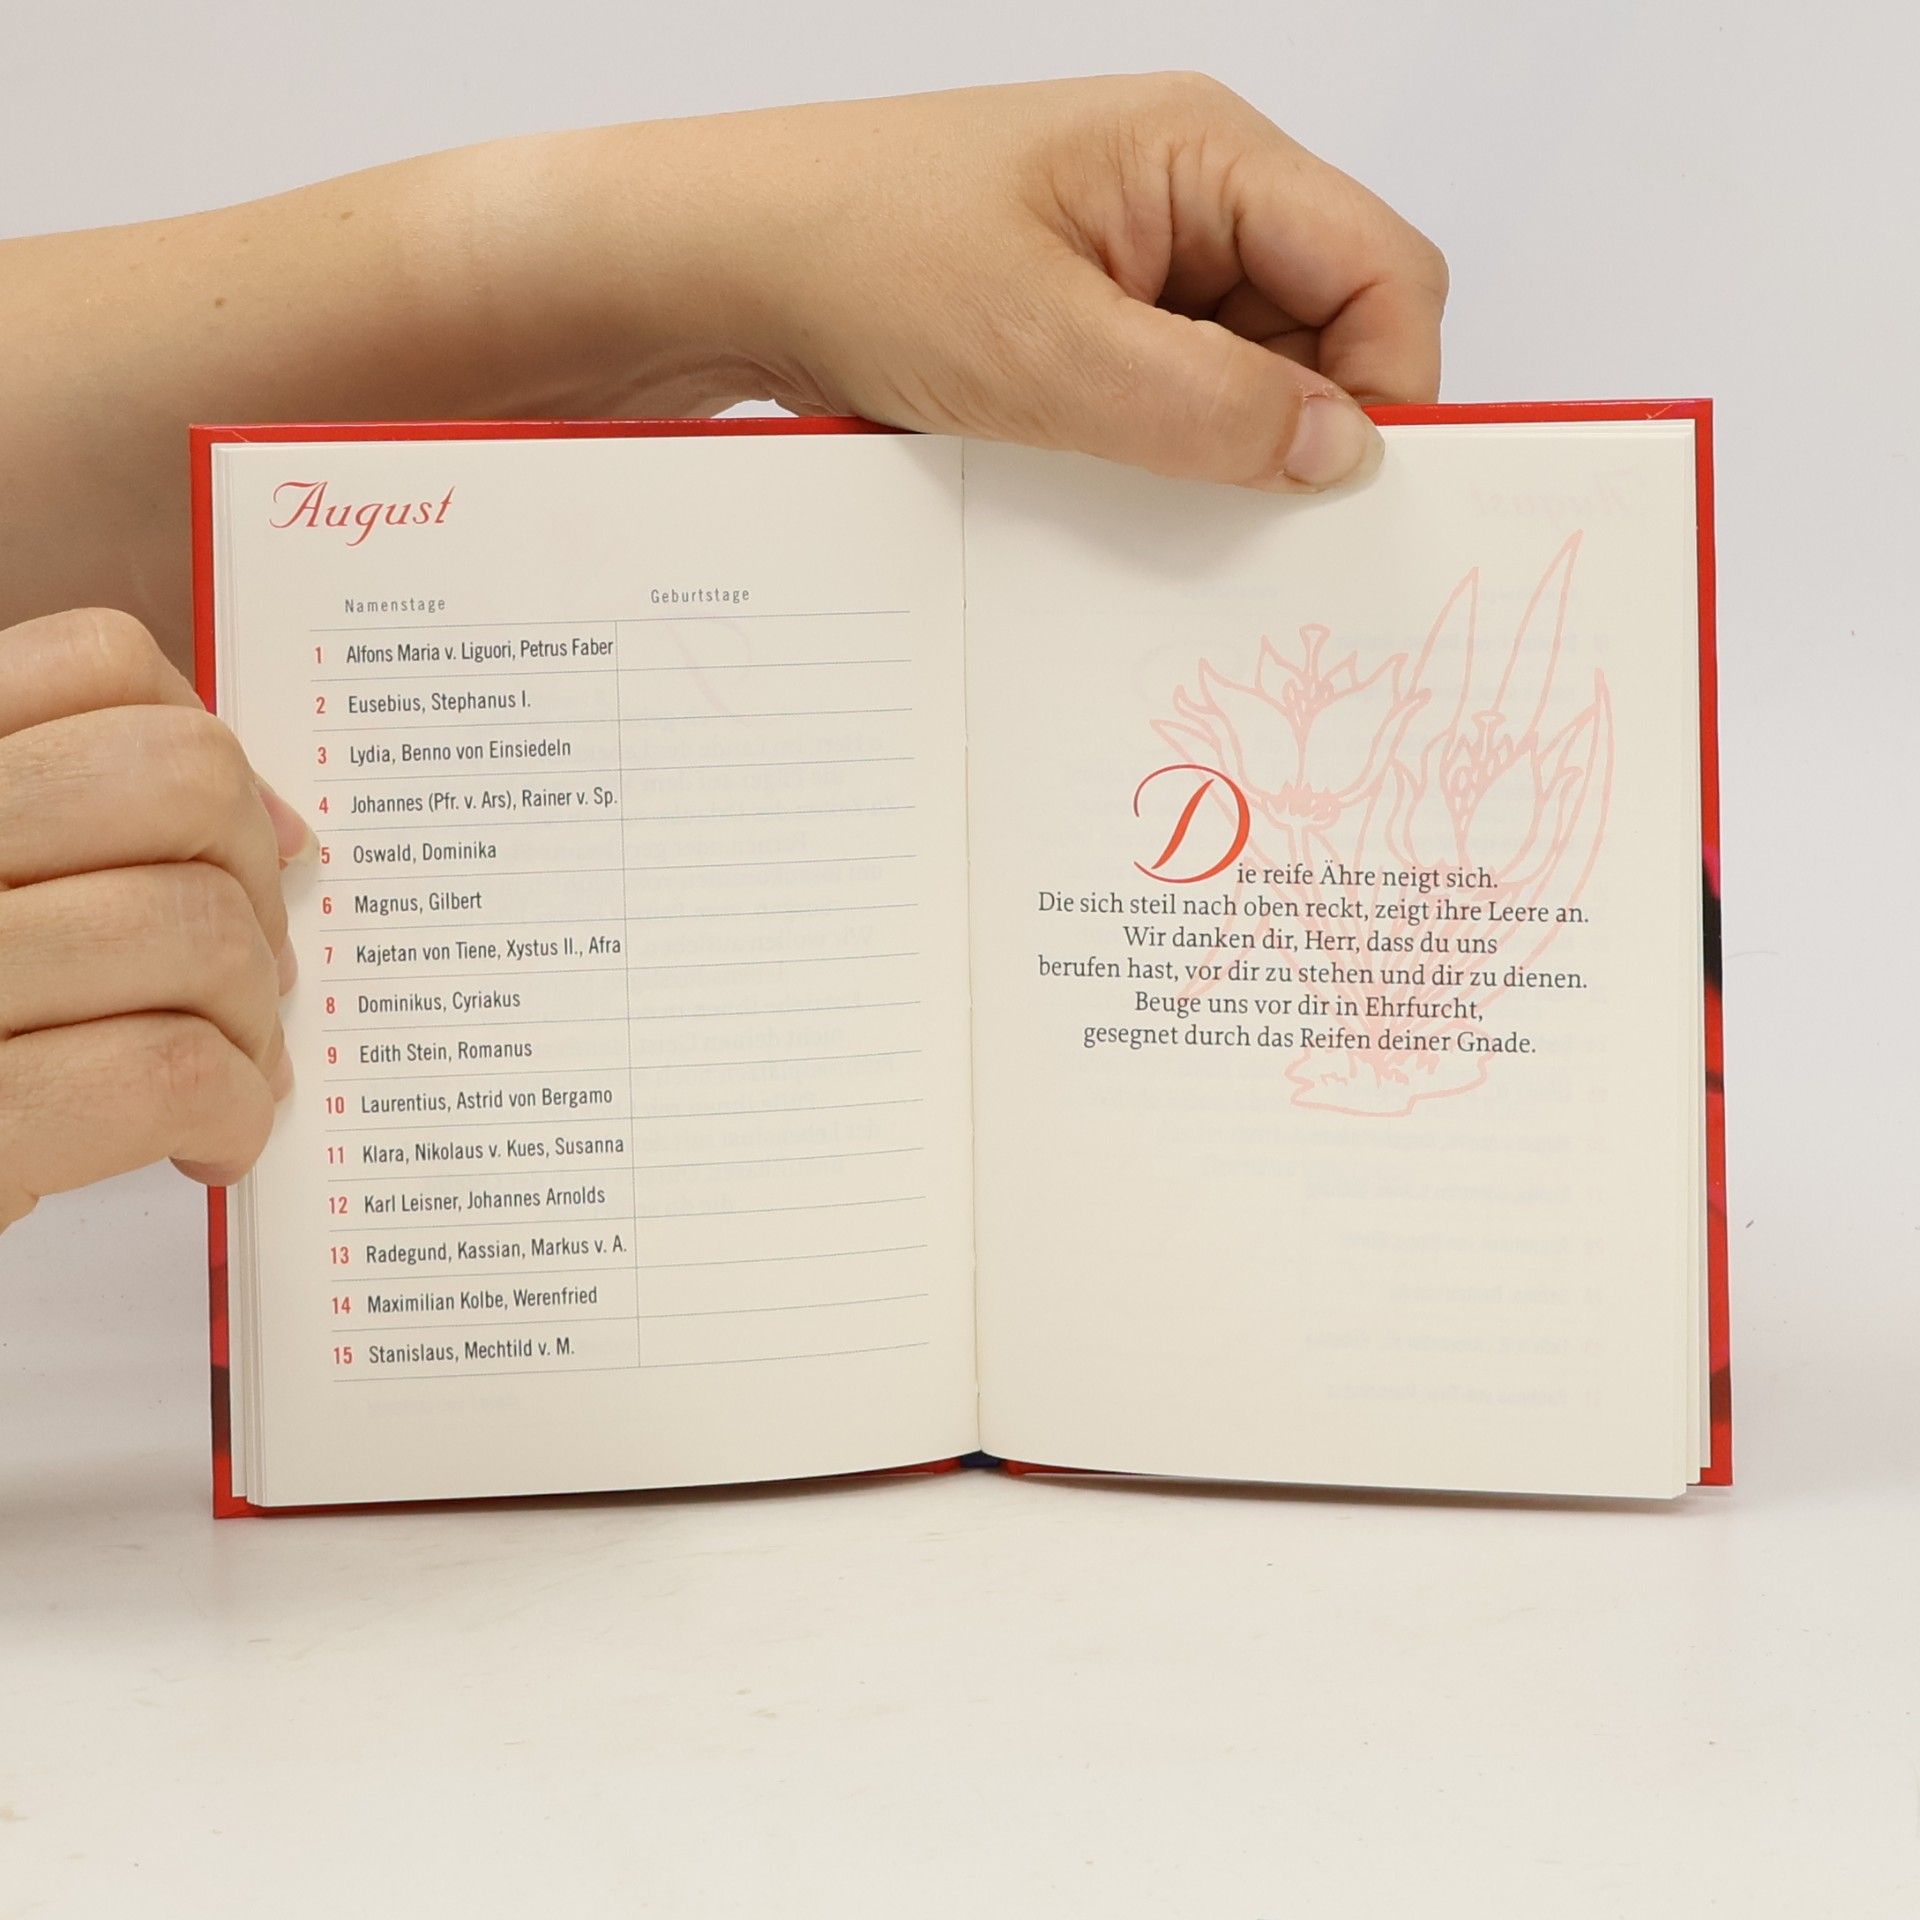 August
Namenstage Geburtstage
1 Alfons Maria v. Liguori, Petrus Faber
2 Eusebius, Stephanus I.
3 Lydia, Benno von Einsiedeln
4 Johannes (Pfr. v. Ars), Rainer v. Sp.
5 Oswald, Dominika
6 Magnus, Gilbert
7 Kajetan von Tiene, Xystus II., Afra
8 Dominikus, Cyriakus
9 Edith Stein, Romanus
10 Laurentius, Astrid von Bergamo
11 Klara, Nikolaus v. Kues, Susanna
12 Karl Leisner, Johannes Arnolds
13 Radegund, Kassian, Markus v. A.
14 Maximilian Kolbe, Werenfried
15 Stanislaus, Mechtild v. M.
Die reife Ähre neigt sich.
Die sich steil nach oben reckt, zeigt ihre Leere an.
Wir danken dir, Herr, dass du uns
berufen hast, vor dir zu stehen und dir zu dienen.
Beuge uns vor dir in Ehrfurcht,
gesegnet durch das Reifen deiner Gnade.